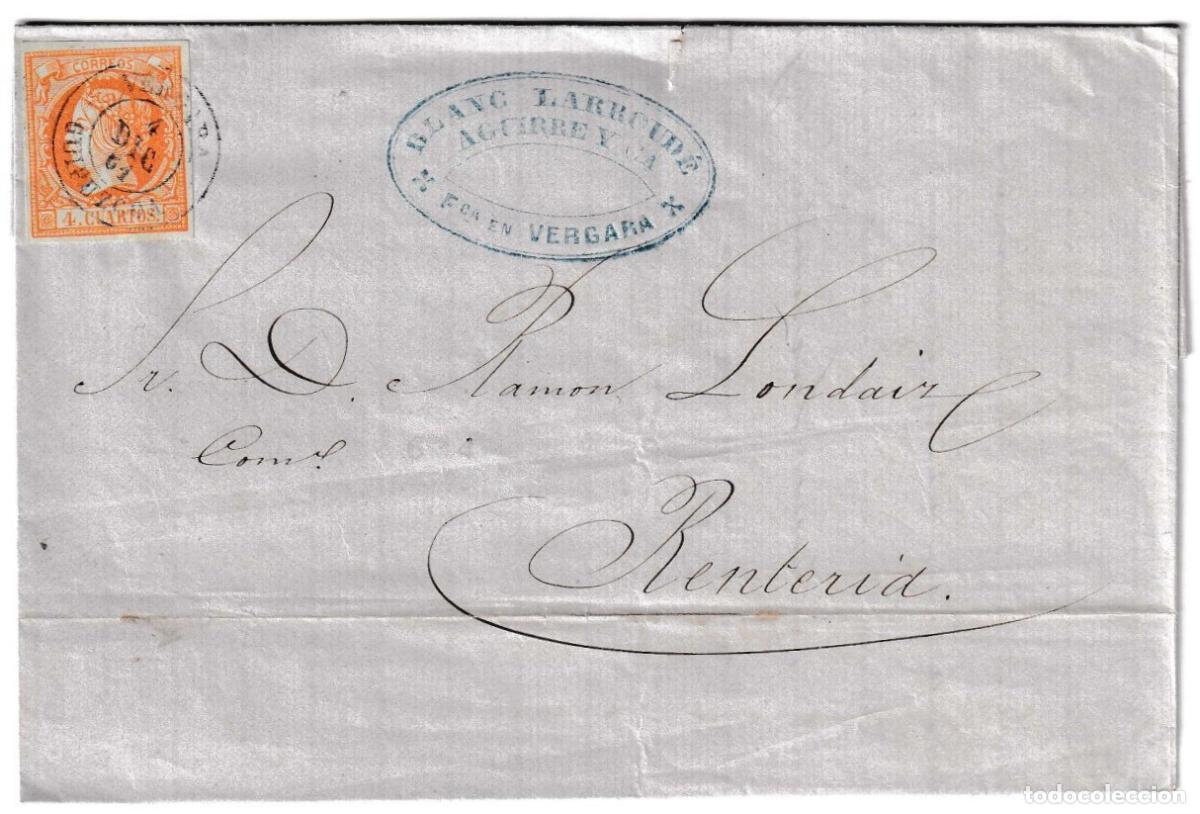 CORREOS
VERGARA
4
DIC
61
GUIPUZCOA
4. CUARTOS.
BLANC LARROUDÉ
AGUIRRE Y CA
Fca EN VERGARA
Sr. D. Ramon Londaiz
Como
Renteria.
todocoleccion